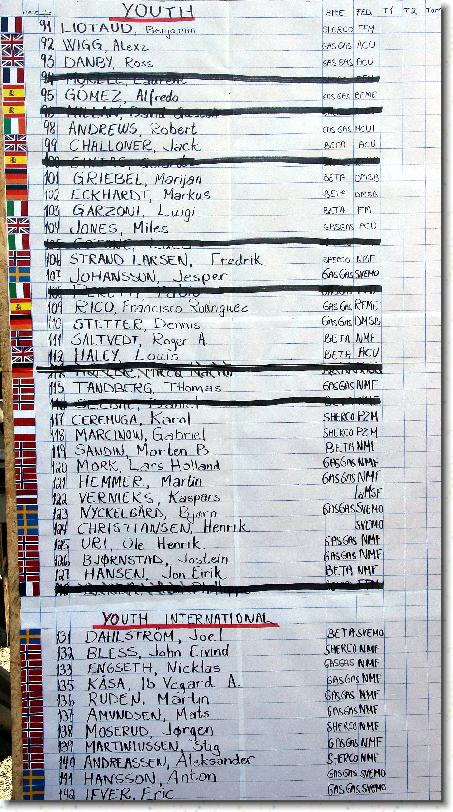 YOUTH BIKE FED. T1 T2
91 LIOTAUD, Benjamin SHERCO FFM
92 WIGG, Alexz GASGAS ACU
93 DANBY, Ross GASGAS ACU
94
95 GOMEZ, Alfredo GASGAS RFME
98 ANDREWS, Robert GASGAS MCUI
99 CHALLONER, Jack BETA ACU
101 GRIEBEL, Marijan BETA DMSB
102 ECKHARDT, Markus BETA DMSB
103 GARZONI, Luigi BETA FMI
104 JONES, Miles GASGAS ACU
106 STRAND LARSEN, Fredrik SHERCO NMF
107 JOHANSSON, Jesper GASGAS SVEMO
109 RICO, Francisco Rodriguez GASGAS RFME
110 STETTER, Dennis GASGAS DMSB
111 SALTVEDT, Roger A. BETA NMF
112 HALEY, Louis BETA ACU
115 TANDBERG, THomas GASGAS NMF
117 CEREMUGA, Karol SHERCO PZM
118 MARCINOW, Gabriel SHERCO PZM
119 SANDIN, Morten B BETA NMF
120 MORK, Lars Holland GASGAS NMF
121 HEMMER, Martin GASGAS NMF
122 VERNIEKS, Kaspars LaMSF
123 NYCKELGÅRD, Bjørn GASGAS SVEMO
124 CHRISTIANSEN, Henrik SVEMO
125 URI, Ole Henrik GASGAS NMF
126 BJØRNSTAD, Jostein GASGAS NMF
127 HANSEN, Jon Eirik BETA NMF
YOUTH INTERNATIONAL
131 DAHLSTRÖM, Joel BETA SVEMO
132 BLESS, John Eivind SHERCO NMF
133 ENGSETH, Nicklas GASGAS NMF
135 KÅSA, Ib Vegard A. GASGAS NMF
136 RUDEN, Martin GASGAS NMF
137 AMUNDSEN, Mats GASGAS NMF
138 MOSERUD, Jørgen SHERCO NMF
139 MARTINIUSSEN, Stig GASGAS NMF
140 ANDREASSEN, Aleksander SHERCO NMF
141 HANSSON, Anton GASGAS SVEMO
142 IFVER, Eric GASGAS SVEMO